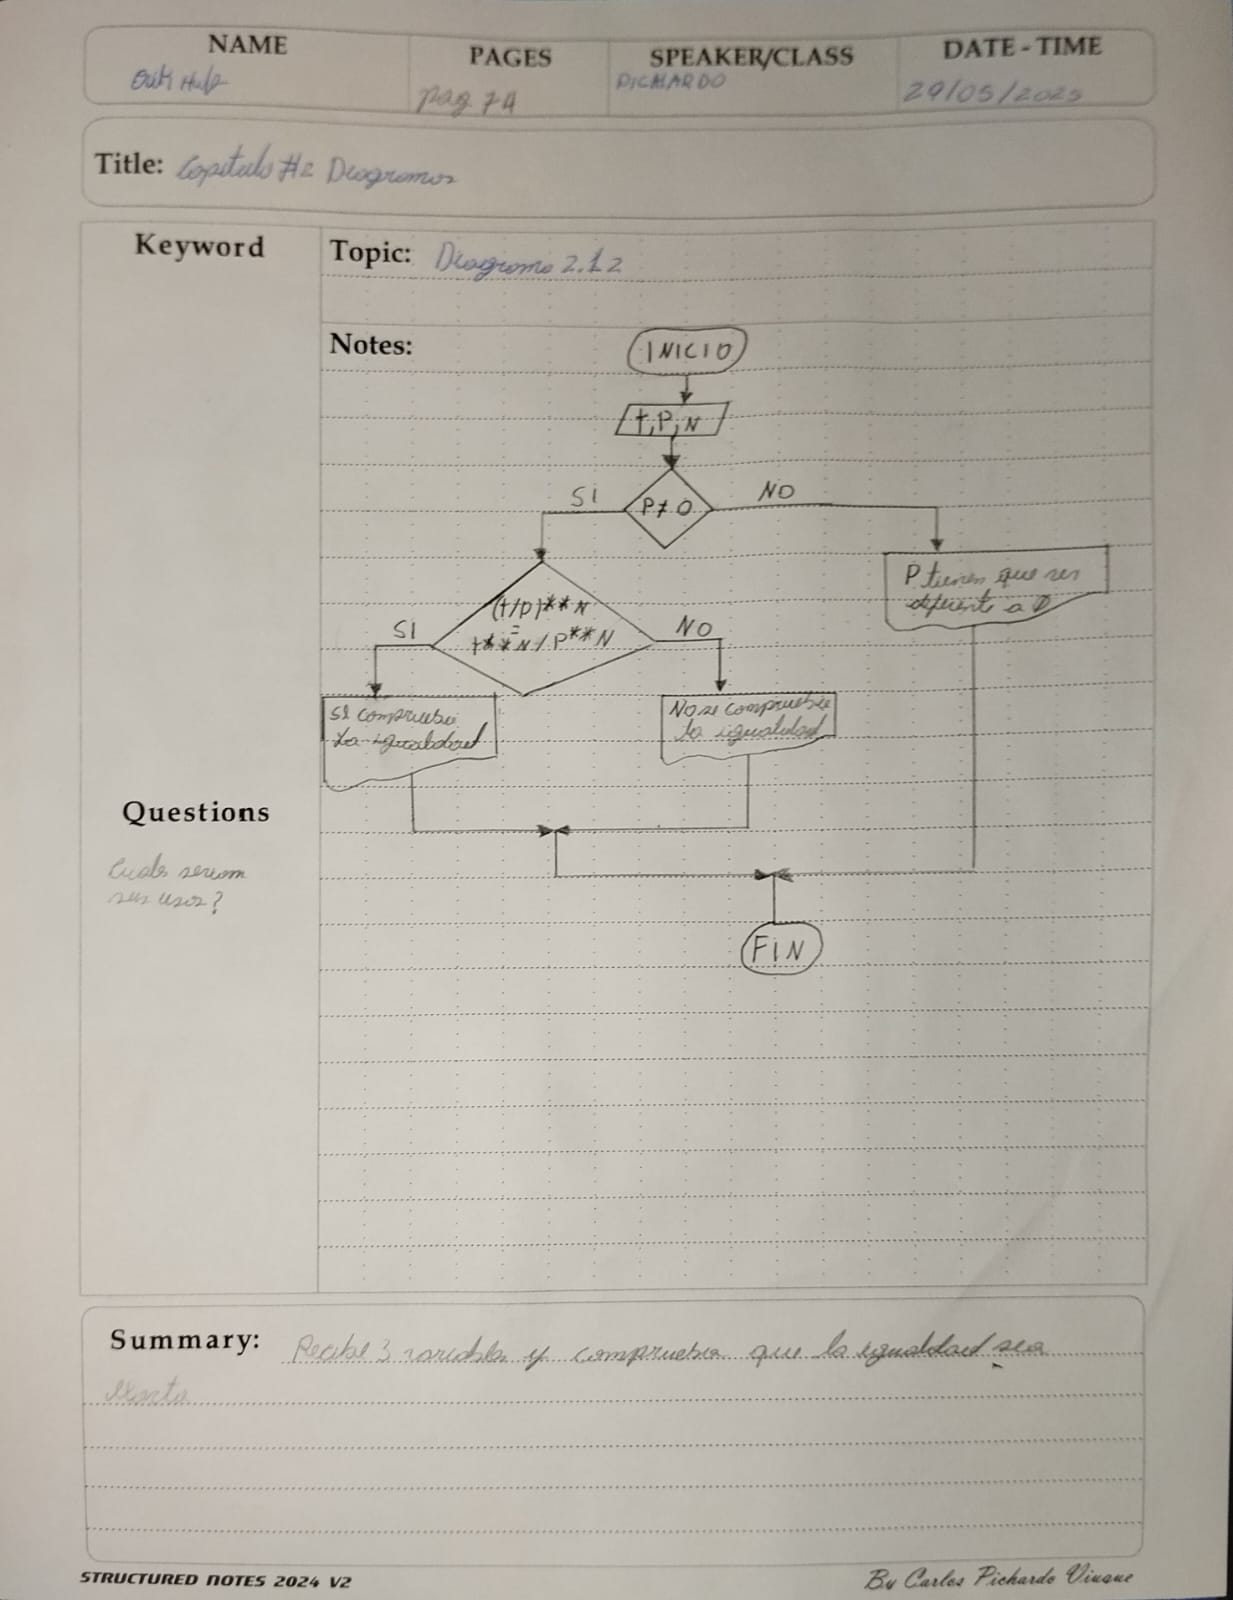 NAME
PAGES
SPEAKER/CLASS
DATE - TIME
pag 74
PICHARDO
29/05/2025
Title: Capitulo #2 Diagramas
Keyword
Topic: Diagrama 2.12
Notes:
INICIO
t, P, N
SI
P ≠ 0
NO
P tienen que ser
diferente a 0
(t/p)**N
=
t**N / P**N
SI
NO
SI comprueba
La igualdad
No se comprueba
la igualdad
Questions
Cuales serian
sus usos?
FIN
Summary: Recibe 3 variables y comprueba que la igualdad sea
STRUCTURED NOTES 2024 V2
By Carlos Pichardo Viuque